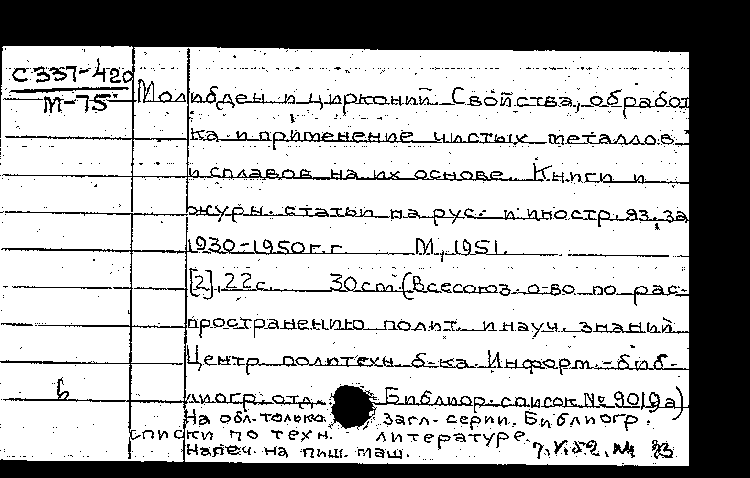 С 337-420
М-75
Молибден и цирконий Свойства, обработ
ка и применение чистых металлов
и сплавов на их основе. Книги и
журн. статьи на рус. и иностр. яз. за
1930-1950г.г. М, 1951.
[2], 22с. 30cm (Всесоюз. о-во по рас-
пространению полит. и науч. знаний
Центр. политехн б-ка Информ.-биб-
лиогр. отд. Библиор. список № 9019а)
На обл. только загл. серии. Библиогр.
списки по техн. литературе.
Напеч. на пиш. маш.
7.V.52.